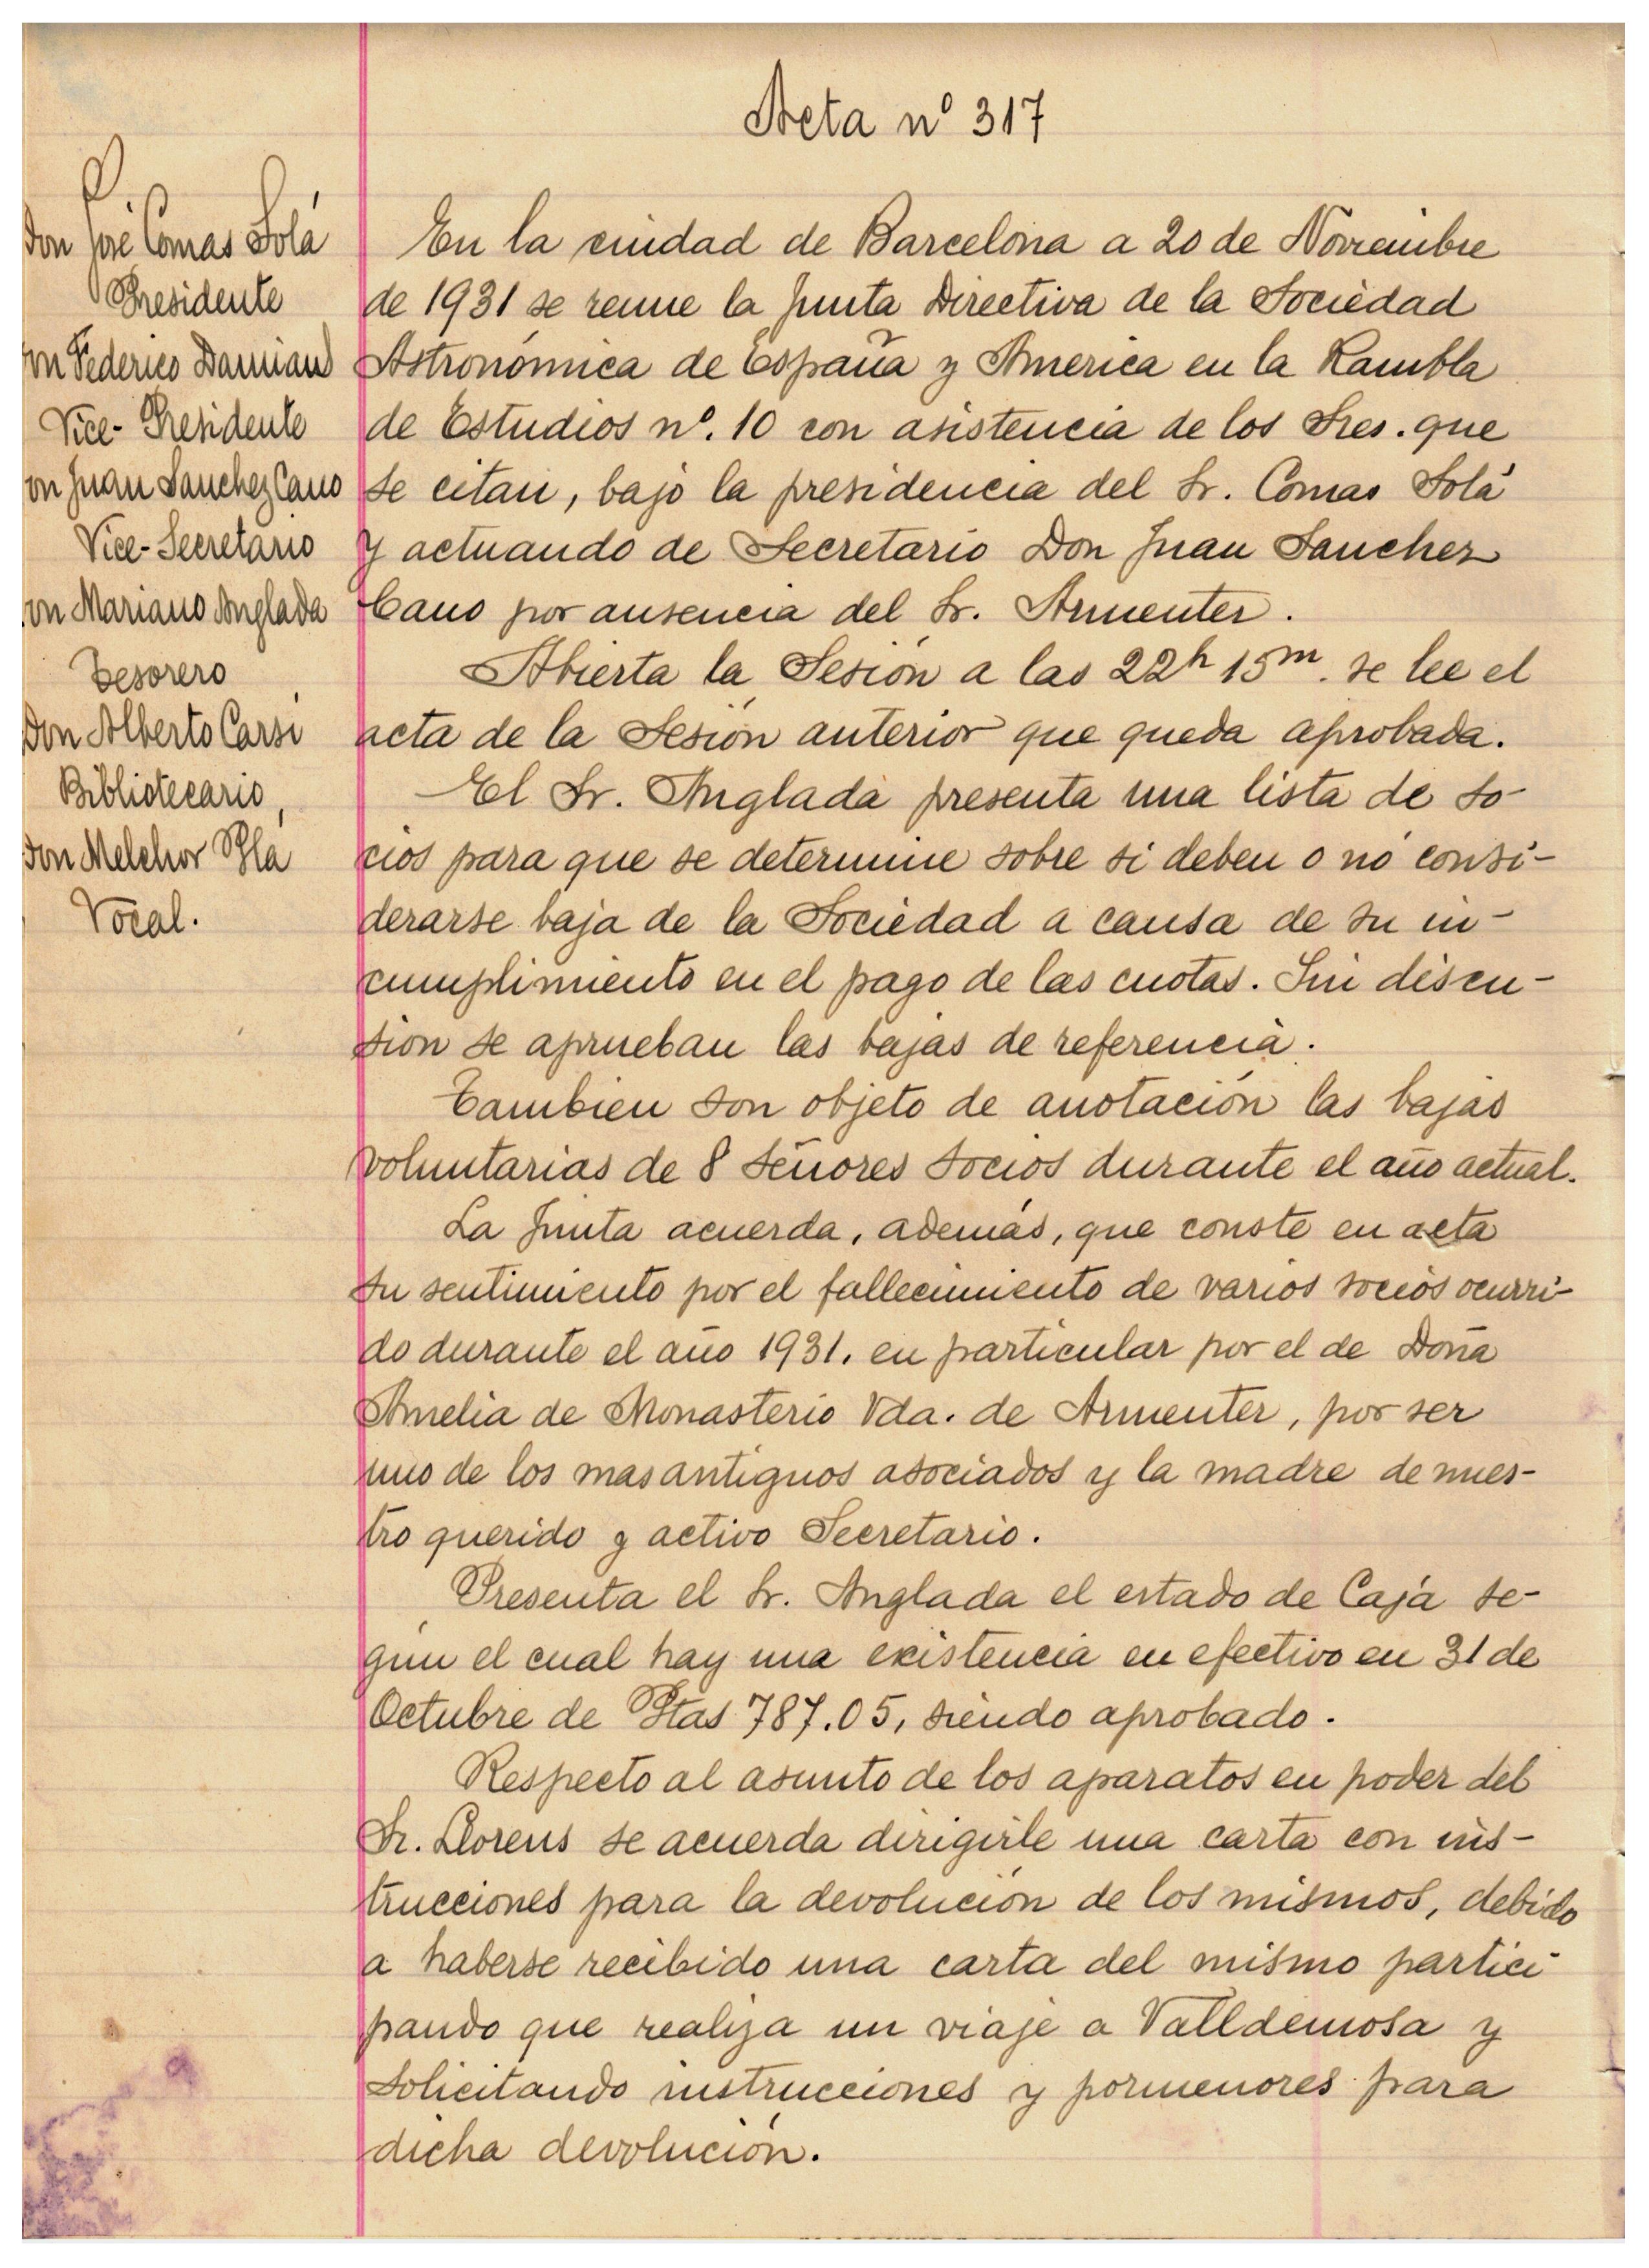 Acta nº 317
P.
Don José Comas Solá
Presidente
on Federico Damians
Vice-Presidente
on Juan Sanchez Cano
Vice-Secretario
on Mariano Anglada
Tesorero
Don Alberto Carsi
Bibliotecario,
Don Melchor Plá
Vocal.
En la ciudad de Barcelona a 20 de Noviembre
de 1931 se reune la Junta Directiva de la Sociedad
Astronómica de España y America en la Rambla
de Estudios nº. 10 con asistencia de los Sres. que
se citan, bajo la presidencia del Sr. Comas Solá
y actuando de Secretario Don Juan Sanchez
Cano por ausencia del Sr. Armenter.
Abierta la Sesión a las 22h 15m. se lee el
acta de la Sesión anterior que queda aprobada.
El Sr. Anglada presenta una lista de so-
cios para que se determine sobre si deben o no consi-
derarse baja de la Sociedad a causa de su in-
cumplimiento en el pago de las cuotas. Sin discu-
sion se aprueban las bajas de referencia.
Tambien son objeto de anotación las bajas
voluntarias de 8 señores socios durante el año actual.
La Junta acuerda, además, que conste en acta
su sentimiento por el fallecimiento de varios socios ocurri-
do durante el año 1931, en particular por el de Doña
Amelia de Monasterio Vda. de Armenter, por ser
uno de los mas antiguos asociados y la madre de nues-
tro querido y activo Secretario.
Presenta el Sr. Anglada el estado de Caja se-
gún el cual hay una existencia en efectivo en 31 de
Octubre de Ptas 787.05, siendo aprobado.
Respecto al asunto de los aparatos en poder del
Sr. Llorens se acuerda dirigirle una carta con ins-
trucciones para la devolución de los mismos, debido
a haberse recibido una carta del mismo partici-
pando que realiza un viaje a Valldemosa y
solicitando instrucciones y pormenores para
dicha devolución.